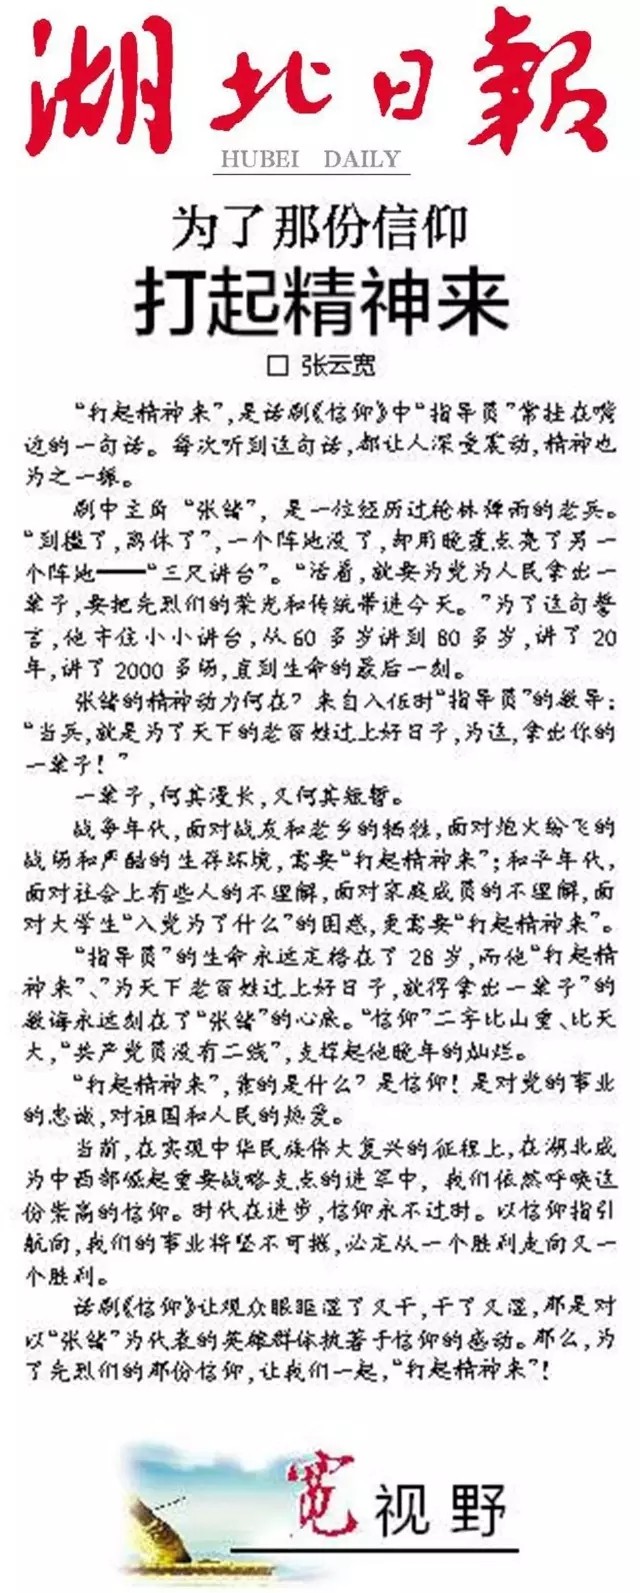 湖北日報
HUBEI DAILY
为了那份信仰
打起精神来
□ 张云宽
“打起精神来”,是话剧《信仰》中“指导员”常挂在嘴
边的一句话。每次听到这句话,都让人深受震动,精神也
为之一振。
剧中主角“张绪”，是一位经历过枪林弹雨的老兵。
“到槛了,离休了”,一个阵地没了,却用晚霞点亮了另一
个阵地——“三尺讲台”。“活着,就要为党为人民拿出一
辈子,要把先烈们的荣光和传统带进今天。”为了这句誓
言,他守住小小讲台,从60多岁讲到80多岁,讲了20
年,讲了2000多场,直到生命的最后一刻。
张绪的精神动力何在?来自入伍时“指导员”的教导:
“当兵,就是为了天下的老百姓过上好日子,为这,拿出你的
一辈子!”
一辈子,何其漫长,又何其短暂。
战争年代,面对战友和老乡的牺牲,面对炮火纷飞的
战场和严酷的生存环境,需要“打起精神来”;和平年代,
面对社会上有些人的不理解,面对家庭成员的不理解,面
对大学生“入党为了什么”的困惑,更需要“打起精神来”。
“指导员”的生命永远定格在了28岁,而他“打起精
神来”、“为天下老百姓过上好日子,就得拿出一辈子”的
教诲永远刻在了“张绪”的心底。“信仰”二字比山重、比天
大,“共产党员没有二线”,支撑起他晚年的灿烂。
“打起精神来”,靠的是什么?是信仰!是对党的事业
的忠诚,对祖国和人民的热爱。
当前,在实现中华民族伟大复兴的征程上,在湖北成
为中西部崛起重要战略支点的进军中，我们依然呼唤这
份崇高的信仰。时代在进步,信仰永不过时。以信仰指引
航向,我们的事业将坚不可摧,必定从一个胜利走向又一
个胜利。
话剧《信仰》让观众眼眶湿了又干,干了又湿,那是对
以“张绪”为代表的英雄群体执著于信仰的感动。那么,为
了先烈们的那份信仰,让我们一起,“打起精神来”!
宽视野